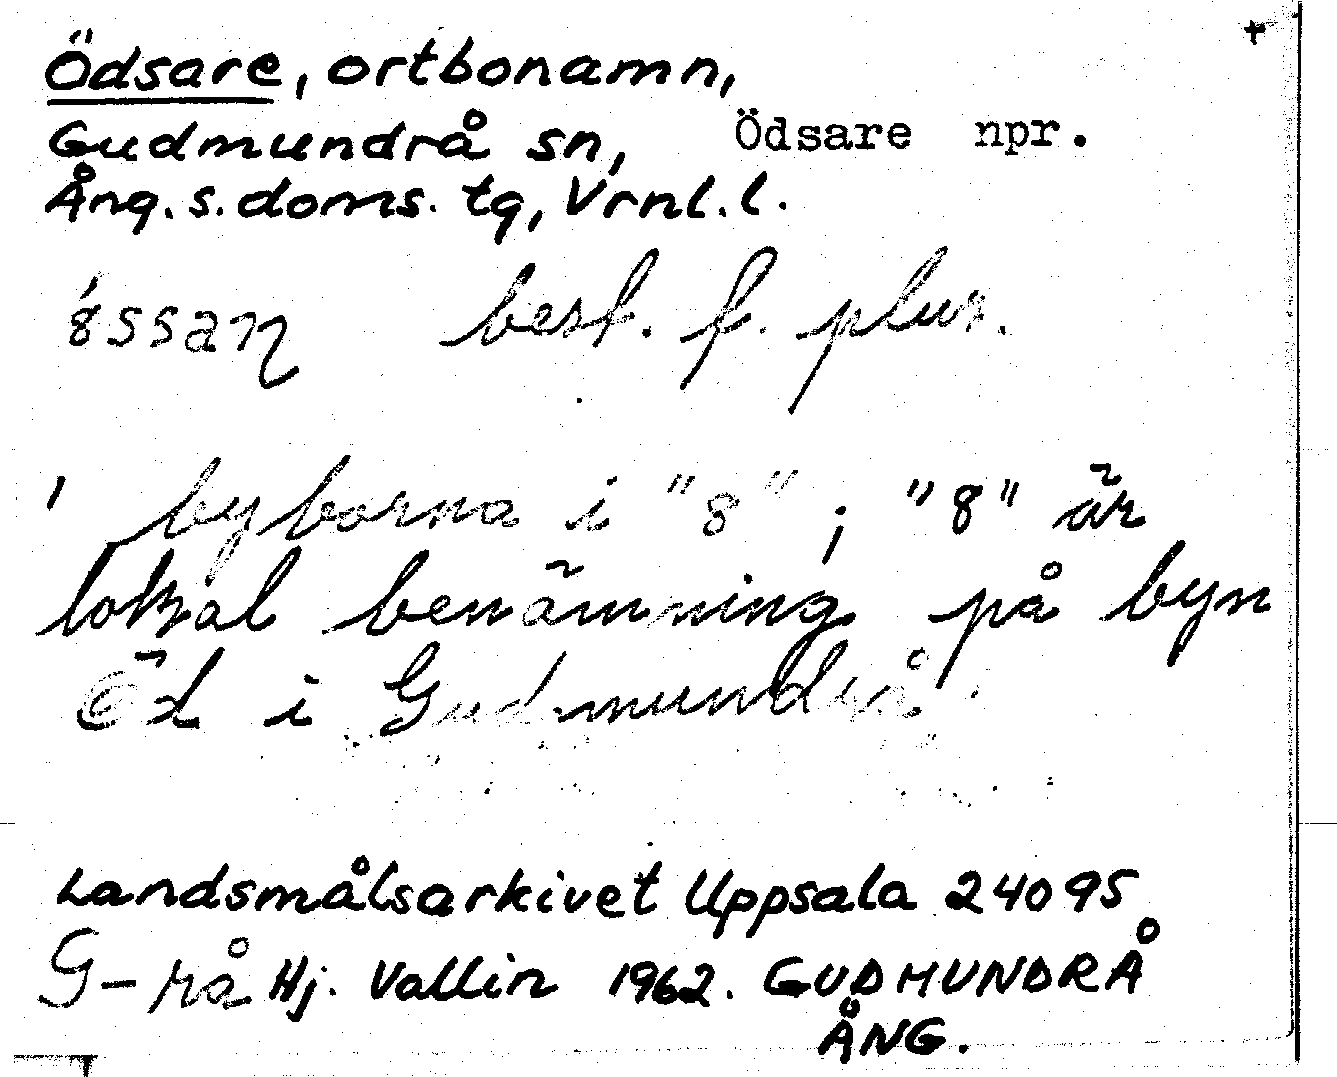 Ödsare, ortbonamn,
Gudmundrå sn, Ödsare npr.
Ång. s. doms. tg, Vrnl. l.
´8ssaɳ best. f. plur.
' byborna i "8" ; "8" är
lokal benämning på byn
Öd i Gudmundrå
Landsmålsarkivet Uppsala 24095
G-rå Hj. Vallin 1962. GUDMUNDRÅ
ÅNG.